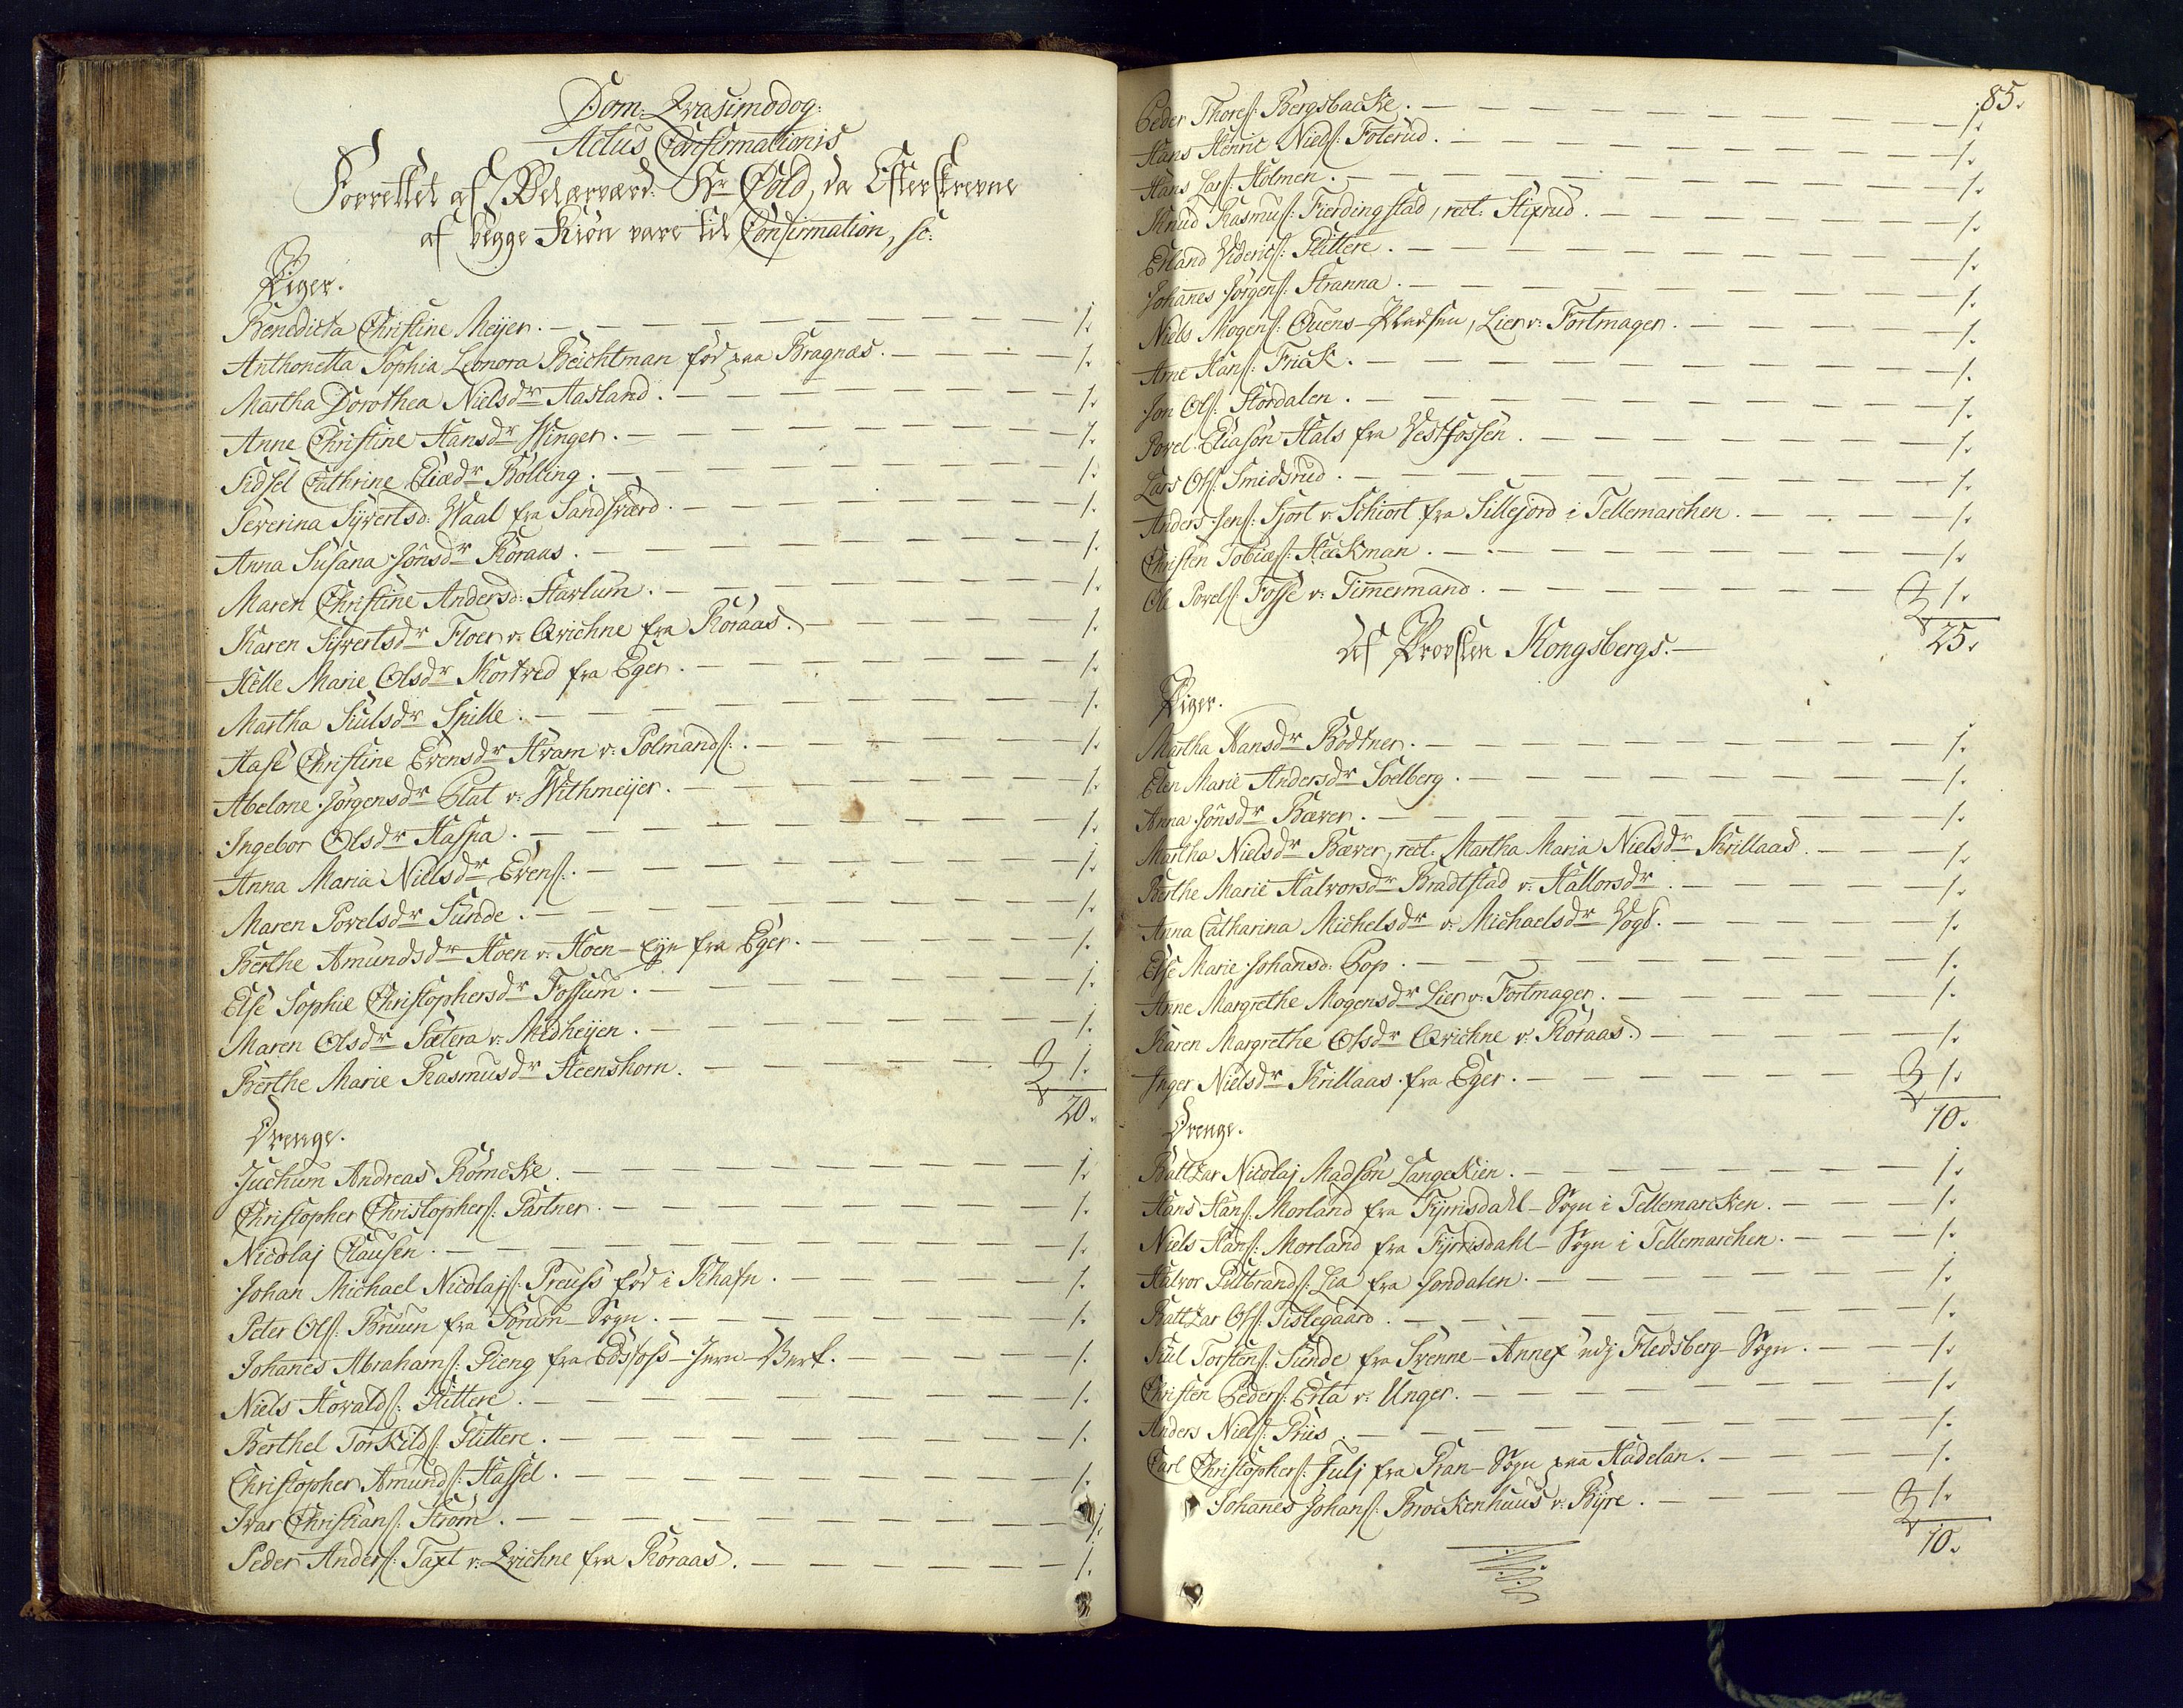 Dom: Qvasimodog:
Actus Confirmationis
Forrettet af Velærværd: Hr Cold, da Efterskrevne
af begge Kiøn vare til Confirmation, sc:
Piger.
Benedicta Christine Meijer. 1.
Anthonetta Sophia Leonora Beichtman fød paa Bragnæs. 1.
Martha Dorothea Nielsdr Aasland. 1.
Anne Christine Hansdr Winger. 1.
Sidsel Cathrine Eliædr Bölling. 1.
Severina Sijvertsd: Waal fra Sandsværd. 1.
Anna Susana Jönsdr Röraas. 1.
Maren Christine Andersd: Harlum. 1.
Karen Sijvertsdr Floer v: Qvichne fra Röraas. 1.
Helle Marie Olsdr Kortved fra Eger. 1.
Martha Siulsdr Spille. 1.
Aase Christine Evensdr Hvam v: Polmands: 1.
Abelone Jörgensdr Plat v: Withmeijer. 1.
Ingebor Olsdr Haspa. 1.
Anna Maria Nielsdr Evens: 1.
Maren Povelsdr Sunde. 1.
Berthe Amundsdr Hoen v: Hoen-Eje fra Eger. 1.
Else Sophie Christophersdr Fossum. 1.
Maren Olsdr Sætera v: Midheijen. 1.
Berthe Marie Rasmusdr Steenshorn. 1.
20.
Drenge.
Juchum Andreas Römcke. 1.
Christopher Christophers: Partner. 1.
Nicolaj Clausen. 1.
Johan Michael Nicolajs: Preuss fød i Khafn. 1.
Peter Ols: Bruun fra Sörum-Sogn. 1.
Johanes Abrahams: Pieng fra Edsfoss-Jern-Verk. 1.
Niels Hovalds: Flittere. 1.
Berthel Torkilds: Flittere. 1.
Christopher Amunds: Hassel. 1.
Ivar Christians: Ström. 1.
Peder Anders: Taxt v: Qvichne fra Röraas. 1.
85.
Peder Thores: Bergsbacke. 1.
Hans Henric Niels: Foterud. 1.
Hans Lars: Holmen. 1.
Knud Rasmus: Fierdingstad, rect: Stixrud. 1.
Erland Viderics: Flittere. 1.
Johanes Jörgens: Stranna. 1.
Niels Mogens: Ouens-Pladsen, Lier v: Fortmager. 1.
Arne Hans: Frick. 1.
Jon Ols: Stordalen. 1.
Povel Eliasön Hals fra Vestfossen. 1.
Lars Ols: Smidsrud. 1.
Anders Jens: Sjort v: Schiort fra Sillejord i Tellemarchen. 1.
Christen Tobiæs: Heckman. 1.
Ole Povels: Fosse v: Timermand. 1.
25.
Af Provsten Kongsbergs.
Piger.
Martha Hansdr Bödtner. 1.
Elen Marie Andersdr Soelberg. 1.
Anna Jönsdr Bæver. 1.
Martha Nielsdr Bæver, rect. Martha Maria Nielsdr Krillaas. 1.
Berthe Marie Halvorsdr Bradtstad v: Hallorsdr. 1.
Anna Catharina Michelsdr v: Michaelsdr Vogt. 1.
Else Marie Johansd: Pop. 1.
Anne Margrethe Mogensdr Lier v: Fortmager. 1.
Karen Margrethe Olsdr Qvichne v: Röraas. 1.
Inger Nielsdr Krillaas fra Eger. 1.
10.
Drenge.
Baltzar Nicolaj Madsön Langeskien. 1.
Hans Hans: Morland fra Fijrrisdahl-Sogn i Tellemarcken. 1.
Niels Hans: Morland fra Fijrrisdahl-Sogn i Tellemarchen. 1.
Halvor Gulbrands: Lia fra Jondalen. 1.
Baltzar Ols: Tislegaard. 1.
Siul Torstens: Sunde fra Svenne-Annex udj Fledsberg-Sogn. 1.
Christen Peders: Erta v: Unger. 1.
Anders Niels: Priis. 1.
Carl Christophers: Julj fra Gran-Sogn paa Hadelan. 1.
Johanes Johans: Brockenhuus v: Bijre. 1.
10.